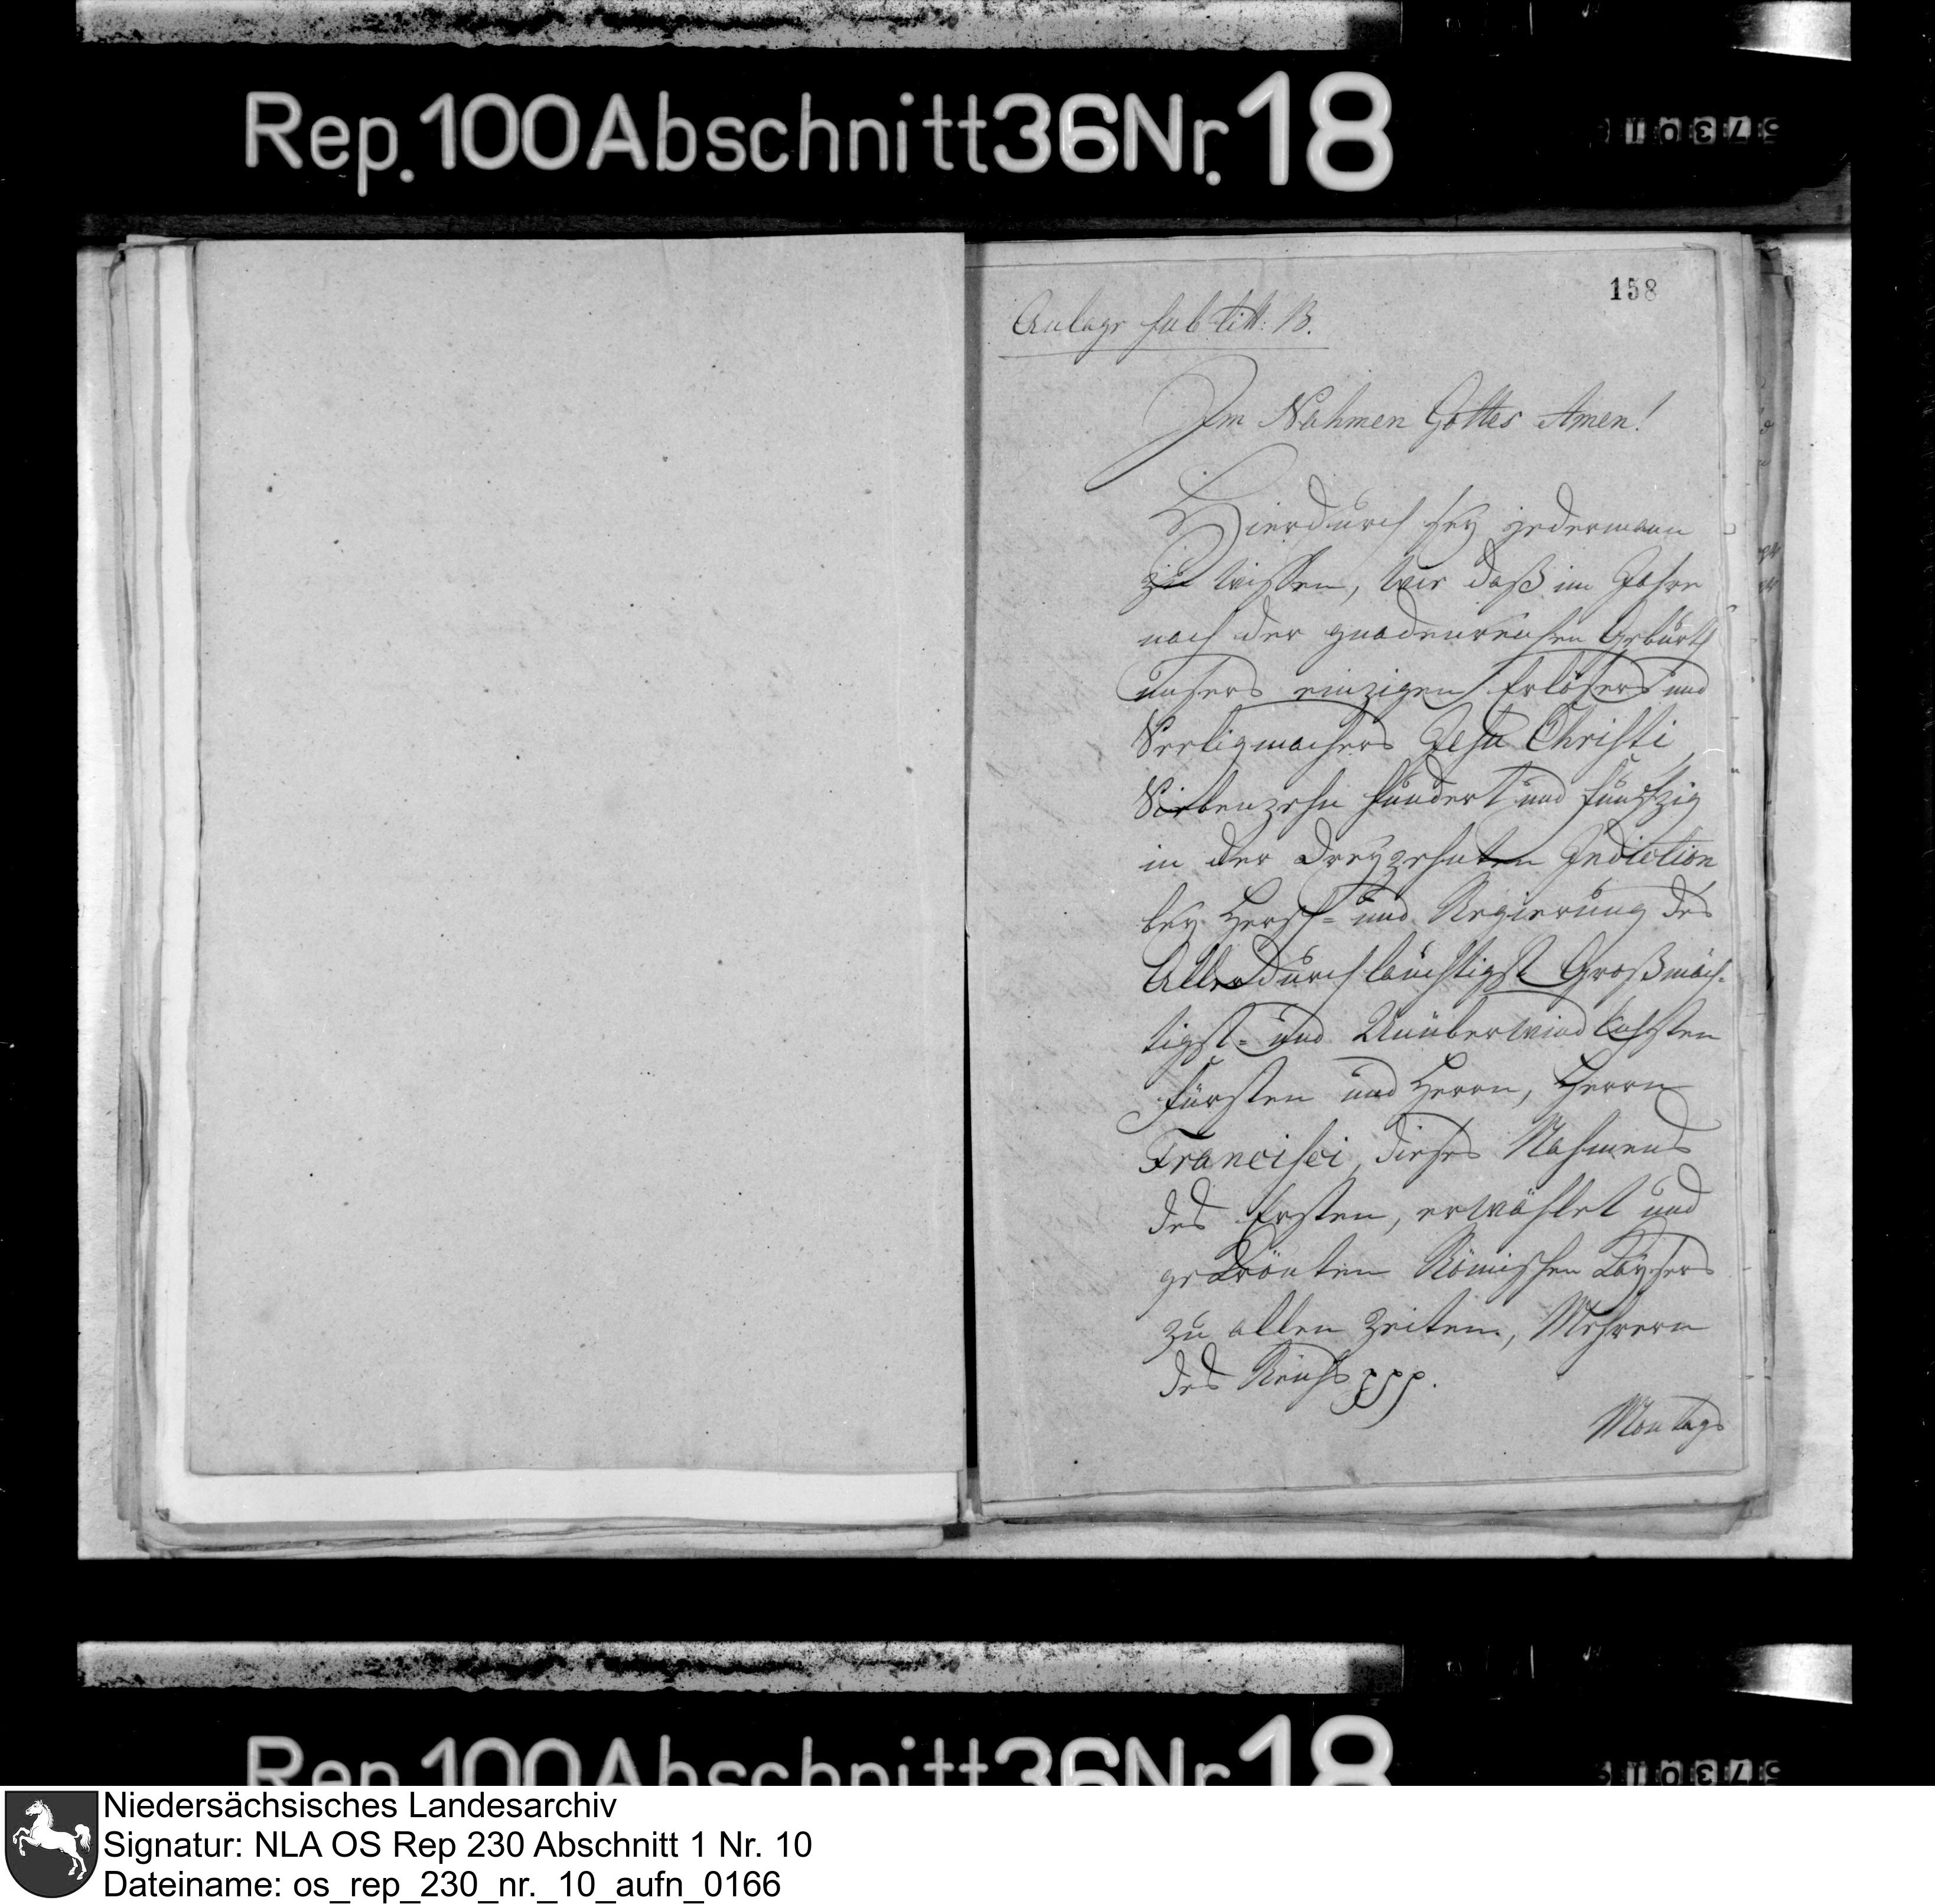 Rep. 100 Abschnitt 36 Nr. 18
158
Anlage sub litt: B.
Im Nahmen Gottes Amen!
Hierdurch sey jedermann
zu wißen, wie daß im Jahre
nach der gnadenreichen Geburth
unsers einzigen Erlösers und
Seeligmachers Jesu Christi
Siebenzehn hundert und funfzig
in der dreyzehnten Indiction
bey Hersch- und Regierung des
Allerdurchläuchtigst Großmäch-
tigst- und Unüberwindlichsten
Fürsten und Herrn, Herrn
Francisci, dieses Nahmens
des Ersten, erwählet und
gekrönten Römischen Kaysers
zu allen Zeiten, Mehrern
des Reichs ppp.
Montags
Rep. 100 Abschnitt 36 Nr. 18
Niedersächsisches Landesarchiv
Signatur: NLA OS Rep 230 Abschnitt 1 Nr. 10
Dateiname: os_rep_230_nr._10_aufn_0166